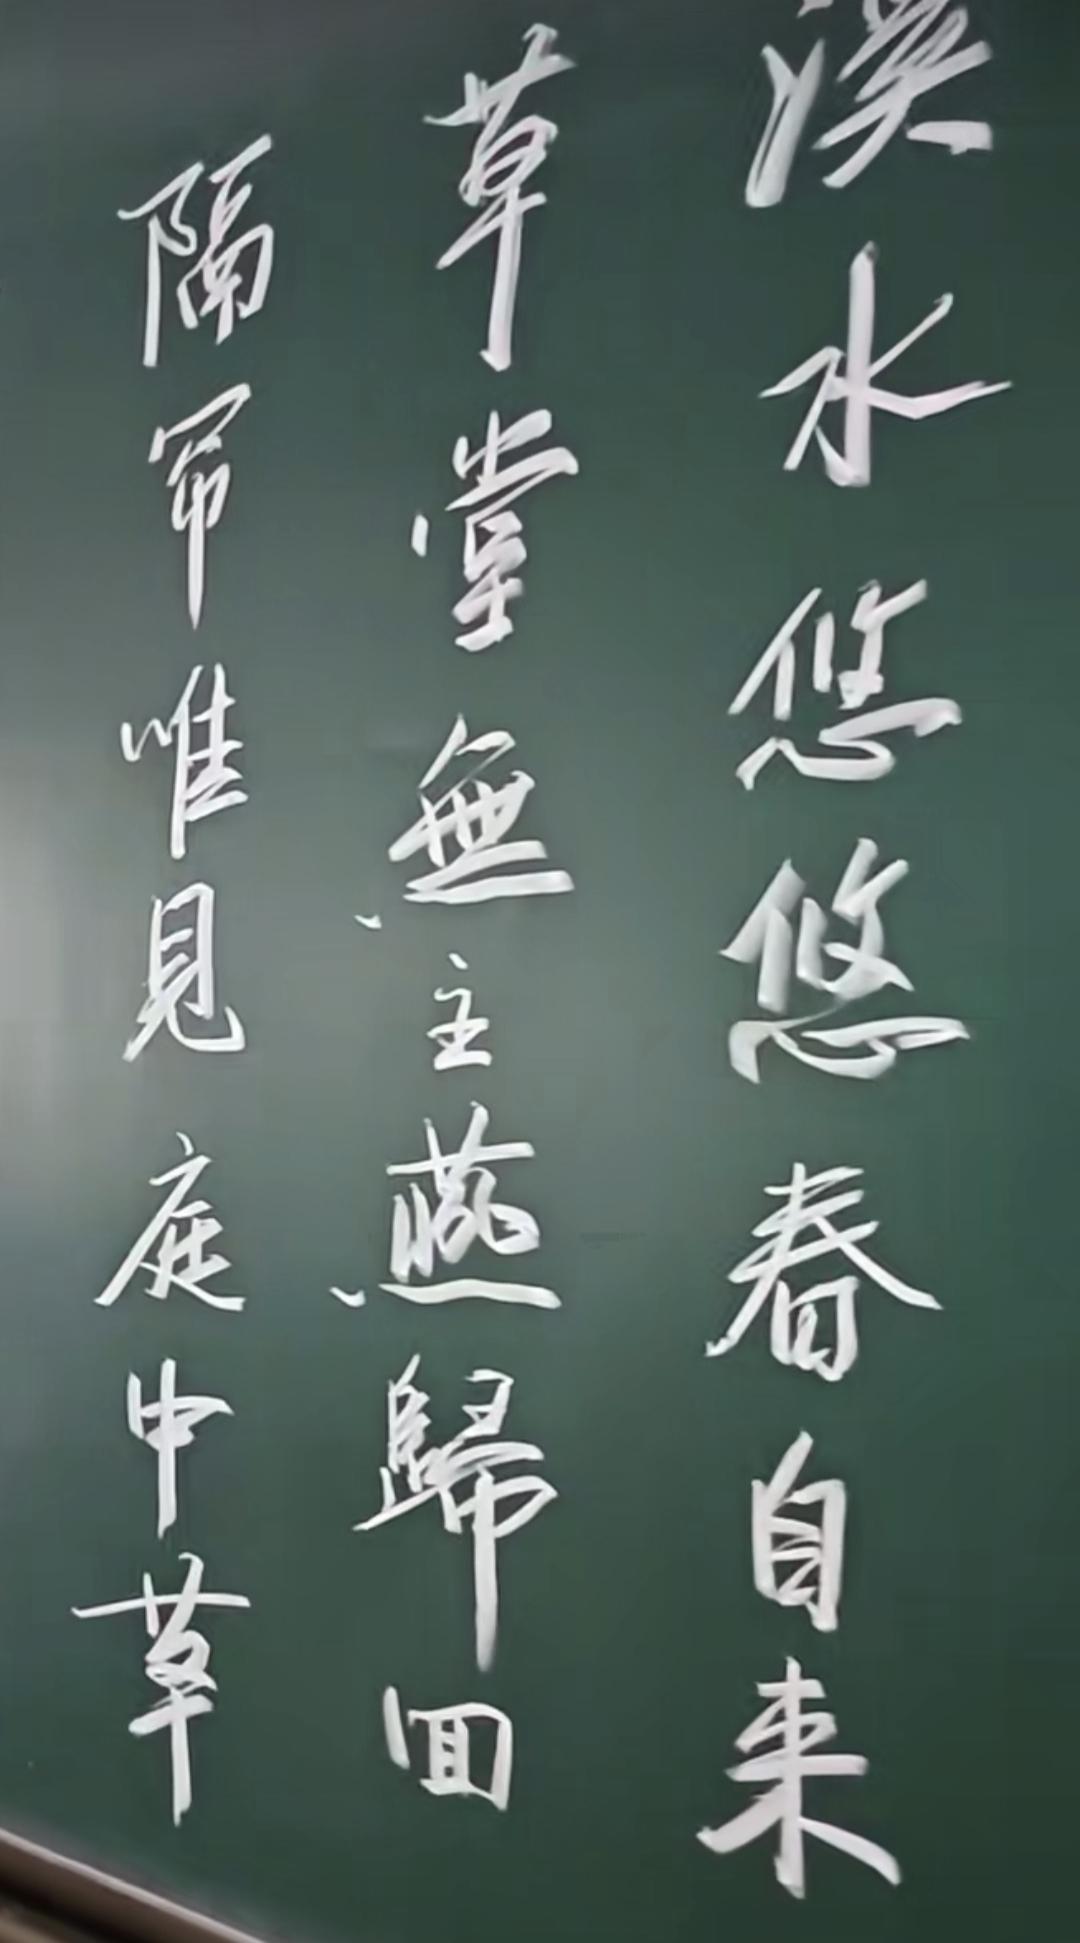 溪水悠悠春自来
草堂無主燕歸囬
隔帘唯見庭中草